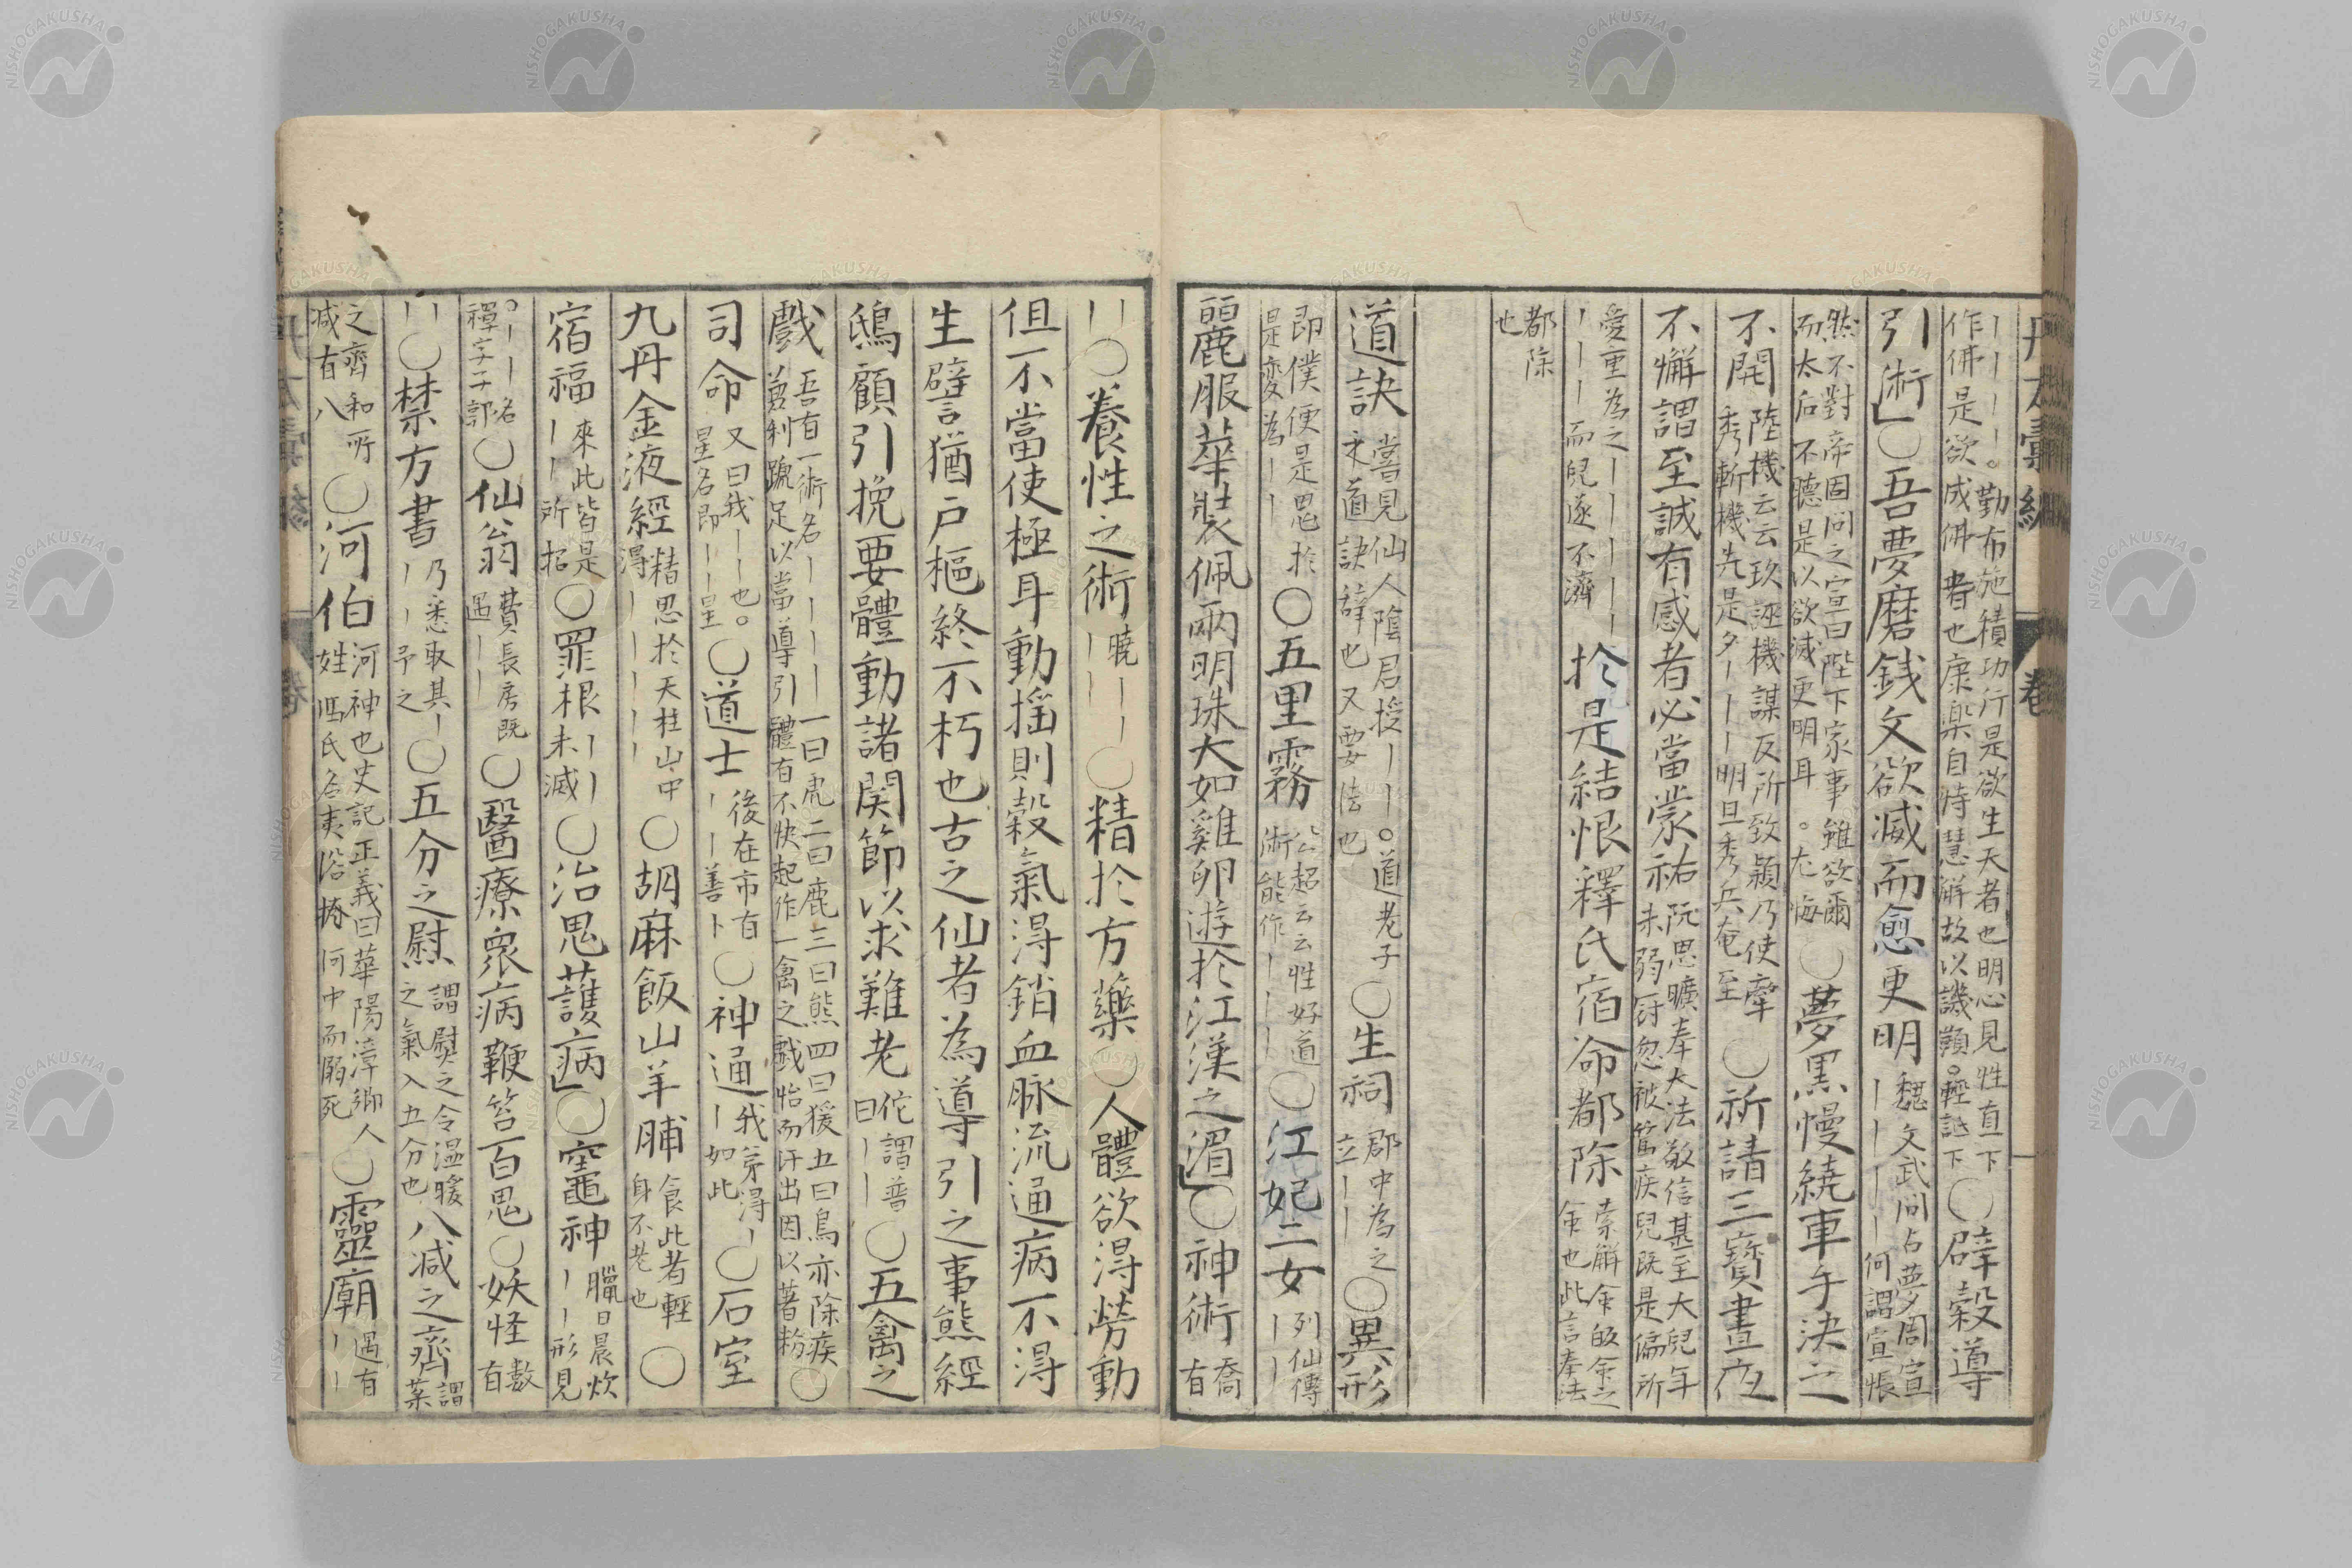 丨丨丨丨。勤布施積功行是欲生天者也明心見性直下
作佛是欲成佛者也康楽自恃慧解故以譏顗。輕詆下〇辟穀導
引術」〇吾夢磨銭文欲滅而愈更明魏文武問占夢周宣
丨丨丨丨何謂宣悵
然不對帝固問之宣曰陛下家事雖欲爾
而太后不聽是以欲滅更明耳。尤悔〇夢黒幔繞車手決之
不開陸機云云玖誣機謀反所致穎乃使牽
秀斬機先是夕丨丨丨明旦秀兵奄至〇祈請三寳晝夜
不懈謂至誠有感者必當蒙祐阮思曠奉大法敬信甚至大兒年
未弱冠忽被篤疾兒既是偏所
愛重為之丨丨丨丨丨
丨丨丨而兒遂不濟於是結恨釋氏宿命都除
都除
也
道訣嘗見仙人陰君授丨丨。道老子
之道訣辞也又要法也〇生祠郡中為之
立丨丨〇異形
即僕便是鬼於
是変為丨丨〇五里霧公超云云性好道
術能作丨丨丨〇江妃二女列仙傳
丨丨
麗服華装佩兩明珠大如雞卵遊於江漢之湄」〇神術有喬
丨丨〇養性之術曉丨丨丨
丨丨丨〇精於方藥〇人體欲得勞動
但不當使極耳動揺則穀氣得銷血脉流通病不得
生譬猶戸樞終不朽也古之仙者為導引之事熊經
鴟顧引挽要體動諸関節以求難老佗謂普
曰丨丨〇五禽之
戲吾有一術名丨丨丨丨丨一曰虎二曰鹿三曰熊四曰猨五曰鳥亦除疾
兼利蹏足以當導引體有不快起作一禽之戲怡而汗出因以著粉〇
司命又曰我丨丨也。
星名即丨丨星〇道士後在市有
丨丨善卜〇神通我弟得丨
丨如此〇石室
九丹金液經精思於天柱山中
得丨丨丨丨〇胡麻飯山羊脯食此者輕
身不老也〇
宿福来此皆是
丨丨所招〇罪根丨丨
未滅〇治鬼護病」〇竈神臘日晨炊
丨丨形見
。丨丨丨名
禪字子郭〇仙翁費長房既
遇丨丨〇醫療衆病鞭笞百鬼〇妖怪數
有
丨丨〇禁方書乃悉取其丨
丨丨予之〇五分之熨謂熨之令温暖
之氣入五分也八減之齊謂
薬
之齊和所
減有八〇河伯河神也史記正義曰華陽漳郷人
姓馮氏名夷浴於河中而溺死〇靈廟遇有
丨丨